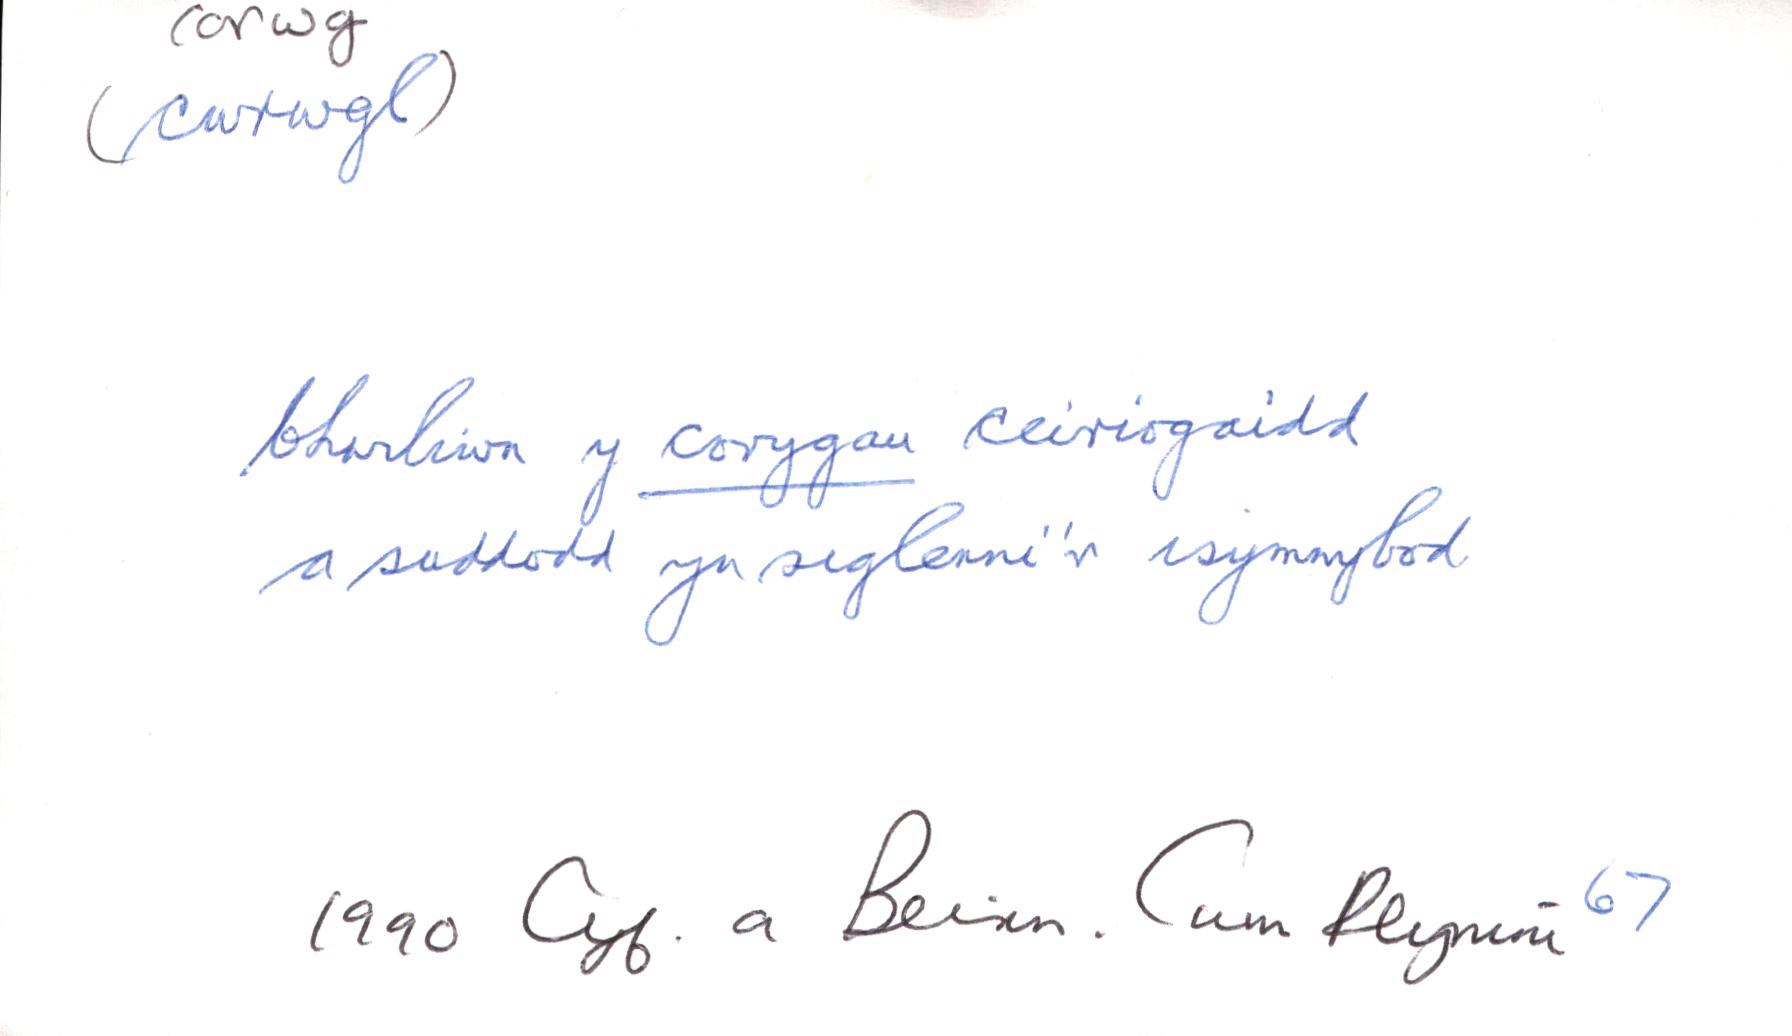 corwg
(cwrwgl)
y corygau ceiriogaidd
a suddodd yn siglenni'r isymwybod
1990 Cyf. a Beirn. Cwm 67